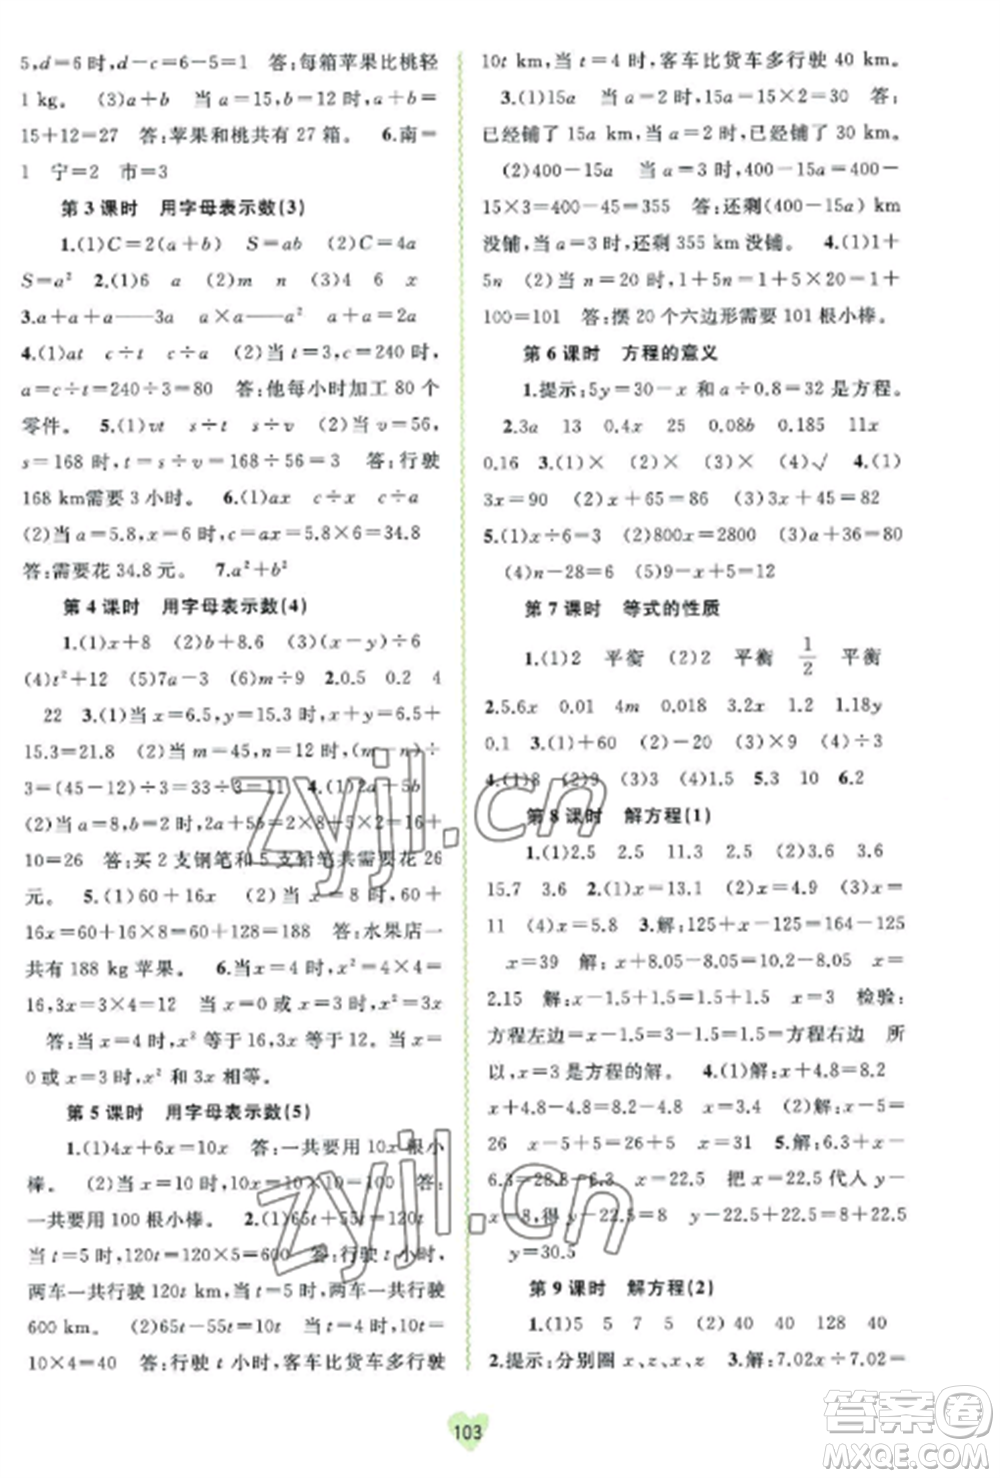 5,d=6 时,d-c=6-5=1 答:每箱苹果比桃轻
1 kg。 (3)a+b 当 a=15,b=12 时,a+b=
15+12=27 答:苹果和桃共有 27 箱。 6.南=
1 宁=2 市=3
第 3 课时 用字母表示数(3)
1.(1)C=2(a+b) S=ab (2)C=4a
S=a² 2.(1)6 a (2)m n (3)4 6 x
3.a+a+a——3a a×a——a² a+a=2a
4.(1)at c÷t c÷a (2)当 t=3,c=240 时,
a=c÷t=240÷3=80 答:他每小时加工 80 个
零件。 5.(1)vt s÷t s÷v (2)当 v=56,
s=168 时,t=s÷v=168÷56=3 答:行驶
168 km需要 3 小时。 6.(1)ax c÷x c÷a
(2)当 a=5.8,x=6 时,c=ax=5.8×6=34.8
答:需要花 34.8 元。 7.a²+b²
第 4 课时 用字母表示数(4)
1.(1)x+8 (2)b+8.6 (3)(x-y)÷6
(4)t²+12 (5)7a-3 (6)m÷9 2.0.5 0.2 4
22 3.(1)当 x=6.5,y=15.3 时,x+y=6.5+
15.3=21.8 (2)当 m=45,n=12 时,(m-n)÷
3=(45-12)÷3=33÷3=11 4.(1)2a+5b
(2)当 a=8,b=2 时,2a+5b=2×8+5×2=16+
10=26 答:买 2 支钢笔和 5 支铅笔共需要花 26
元。 5.(1)60+16x (2)当 x=8 时,60+
16x=60+16×8=60+128=188 答:水果店一
共有 188 kg 苹果。 6.当 x=4 时,x²=4×4=
16,3x=3×4=12 当 x=0 或 x=3 时,x²=3x
答:当 x=4 时,x² 等于 16,3x 等于 12。当 x=
0或 x=3 时,x² 和 3x 相等。
第 5 课时 用字母表示数(5)
1.(1)4x+6x=10x 答:一共要用 10x 根小
棒。 (2)当 x=10 时,10x=10×10=100 答:
一共要用 100 根小棒。 2.(1)65t+55t=120t
当 t=5 时,120t=120×5=600 答:行驶 t 小时,
两车一共行驶 120t km,当 t=5 时,两车一共行驶
600 km。 (2)65t-55t=10t 当 t=4 时,10t=
10×4=40 答:行驶 t 小时,客车比货车多行驶
10t km,当 t=4 时,客车比货车多行驶 40 km。
3.(1)15a 当 a=2 时,15a=15×2=30 答:
已经铺了 15a km,当 a=2 时,已经铺了 30 km。
(2)400-15a 当 a=3 时,400-15a=400-
15×3=400-45=355 答:还剩(400-15a) km
没铺,当 a=3 时,还剩 355 km 没铺。 4.(1)1+
5n (2)当 n=20 时,1+5n=1+5×20=1+
100=101 答:摆 20 个六边形需要 101 根小棒。
第 6 课时 方程的意义
1.提示:5y=30-x 和 a÷0.8=32 是方程。
2.3a 13 0.4x 25 0.08b 0.185 11x
0.16 3.(1)× (2)× (3)× (4)√ 4.(1)
3x=90 (2)x+65=86 (3)3x+45=82
5.(1)x÷6=3 (2)800x=2800 (3)a+36=80
(4)n-28=6 (5)9-x+5=12
第 7 课时 等式的性质
1.(1)2 平衡 (2)2 平衡 1/2 平衡
2.5.6x 0.01 4m 0.018 3.2x 1.2 1.18y
0.1 3.(1)+60 (2)-40 (3)×9 (4)÷3
4.(1)8 (2)9 (3)4 (4)1.5 5.3 10 6.2
第 8 课时 解方程(1)
1.(1)2.5 2.5 11.3 (2)3.6 3.6
15.7 3.6 2.(1)x=13.1 (2)x=4.9 (3)x=
11 (4)x=5.8 3.解:125+x-125=164-125
x=39 解:x+8.05-8.05=10.2-8.05 x=
2.15 解:x-1.5+1.5=1.5+1.5 x=3 检验:
方程左边=x-1.5=3-1.5=1.5=方程右边 所
以,x=3 是方程的解。 4.(1)解:x+4.8=8.2
x+4.8-4.8=8.2-4.8 x=3.4 (2)解:x-5=
26 x-5+5=26+5 x=31 5.解:6.3+x-
6.3=28.8-6.3 x=22.5 把 x=22.5 代入 y-
x=8 得 y-22.5=8 y-22.5+22.5=8+22.5
y=30.5
第 9 课时 解方程(2)
1.(1)5 5 7 5 (2)40 40 128 40
2.提示:分别圈 x、z、x、x。 3.解:7.02x÷7.02=
103
zyjl.cn
zyjl.cn
答案圈
MXQE.COM